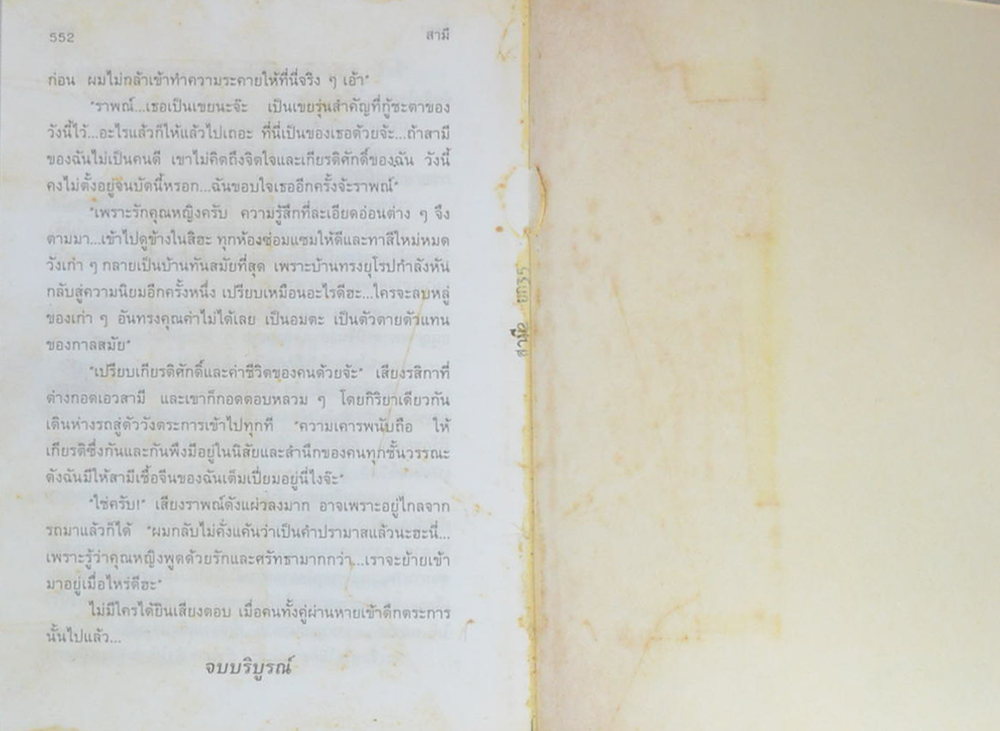 552
สามี
ก่อน ผมไม่กล้าเข้าทำความระคายให้ที่นี่จริง ๆ เอ้า"
"ราพณ์...เธอเป็นเขยนะจ๊ะ เป็นเขยรุ่นสำคัญที่กู้ชะตาของ
วังนี้ไว้...อะไรแล้วก็ให้แล้วไปเถอะ ที่นี่เป็นของเธอด้วยจ้ะ...ถ้าสามี
ของฉันไม่เป็นคนดี เขาไม่คิดถึงจิตใจและเกียรติศักดิ์ของฉัน วังนี้
คงไม่ตั้งอยู่จนบัดนี้หรอก...ฉันขอบใจเธออีกครั้งจ้ะราพณ์"
"เพราะรักคุณหญิงครับ ความรู้สึกที่ละเอียดอ่อนต่าง ๆ จึง
ตามมา...เข้าไปดูข้างในสิฮะ ทุกห้องซ่อมแซมให้ดีและทาสีใหม่หมด
วังเก่า ๆ กลายเป็นบ้านทันสมัยที่สุด เพราะบ้านทรงยุโรปกำลังหัน
กลับสู่ความนิยมอีกครั้งหนึ่ง เปรียบเหมือนอะไรดีฮะ...ใครจะลบหลู่
ของเก่า ๆ อันทรงคุณค่าไม่ได้เลย เป็นอมตะ เป็นตัวตายตัวแทน
ของกาลสมัย"
"เปรียบเกียรติศักดิ์และค่าชีวิตของคนด้วยจ้ะ" เสียงรสิกาที่
ต่างกอดเอวสามี และเขาก็กอดตอบหลวม ๆ โดยกิริยาเดียวกัน
เดินห่างรถสู่ตัววังตระการเข้าไปทุกที "ความเคารพนับถือ ให้
เกียรติซึ่งกันและกันพึงมีอยู่ในนิสัยและสำนึกของคนทุกชั้นวรรณะ
ดังฉันมีให้สามีเชื้อจีนของฉันเต็มเปี่ยมอยู่นี่ไงจ๊ะ"
"ใช่ครับ!" เสียงราพณ์ดังแผ่วลงมาก อาจเพราะอยู่ไกลจาก
รถมาแล้วก็ได้ "ผมกลับไม่คั่งแค้นว่าเป็นคำปรามาสแล้วนะฮะนี่...
เพราะรู้ว่าคุณหญิงพูดด้วยรักและศรัทธามากกว่า...เราจะย้ายเข้า
มาอยู่เมื่อไหร่ดีฮะ"
ไม่มีใครได้ยินเสียงตอบ เมื่อคนทั้งคู่ผ่านหายเข้าตึกตระการ
นั้นไปแล้ว...
จบบริบูรณ์
สามี ยก35